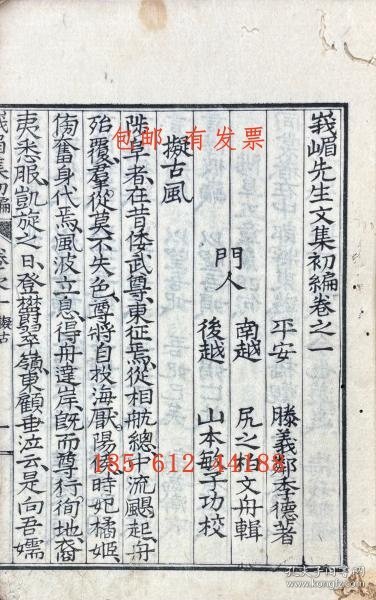 峩嵋先生文集初編卷之一
平安 滕義鄰季德著
門人
南越 尻之柏文舟輯
後越 山本敏子功校
擬古風
陟阜者在昔倭武尊東征焉從相航總中流颶起舟
殆覆羣從莫不失色尊將自投海厭陽侯時妃橘姬
侑奮身代焉風波立息得舟達岸旣而尊行徇地裔
夷悉服凱旋之日登欝翠嶺東顧垂泣云是向吾嬬
初編 卷之一 擬古 一
包邮 有发票
185 612 44188
孔夫子旧书网